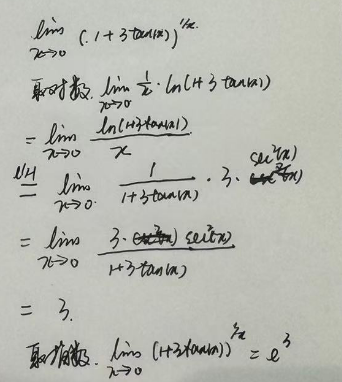 lim x→0 (1+3tan(x))^(1/x)
取对数. lim x→0 1/x · ln(1+3tan(x))
= lim x→0 ln(1+3tan(x)) / x
L'H = lim x→0 1 / (1+3tan(x)) · 3 · sec²(x)
= lim x→0 3 · sec²(x) / (1+3tan(x))
= 3.
取指数. lim x→0 (1+3tan(x))^(1/x) = e^3